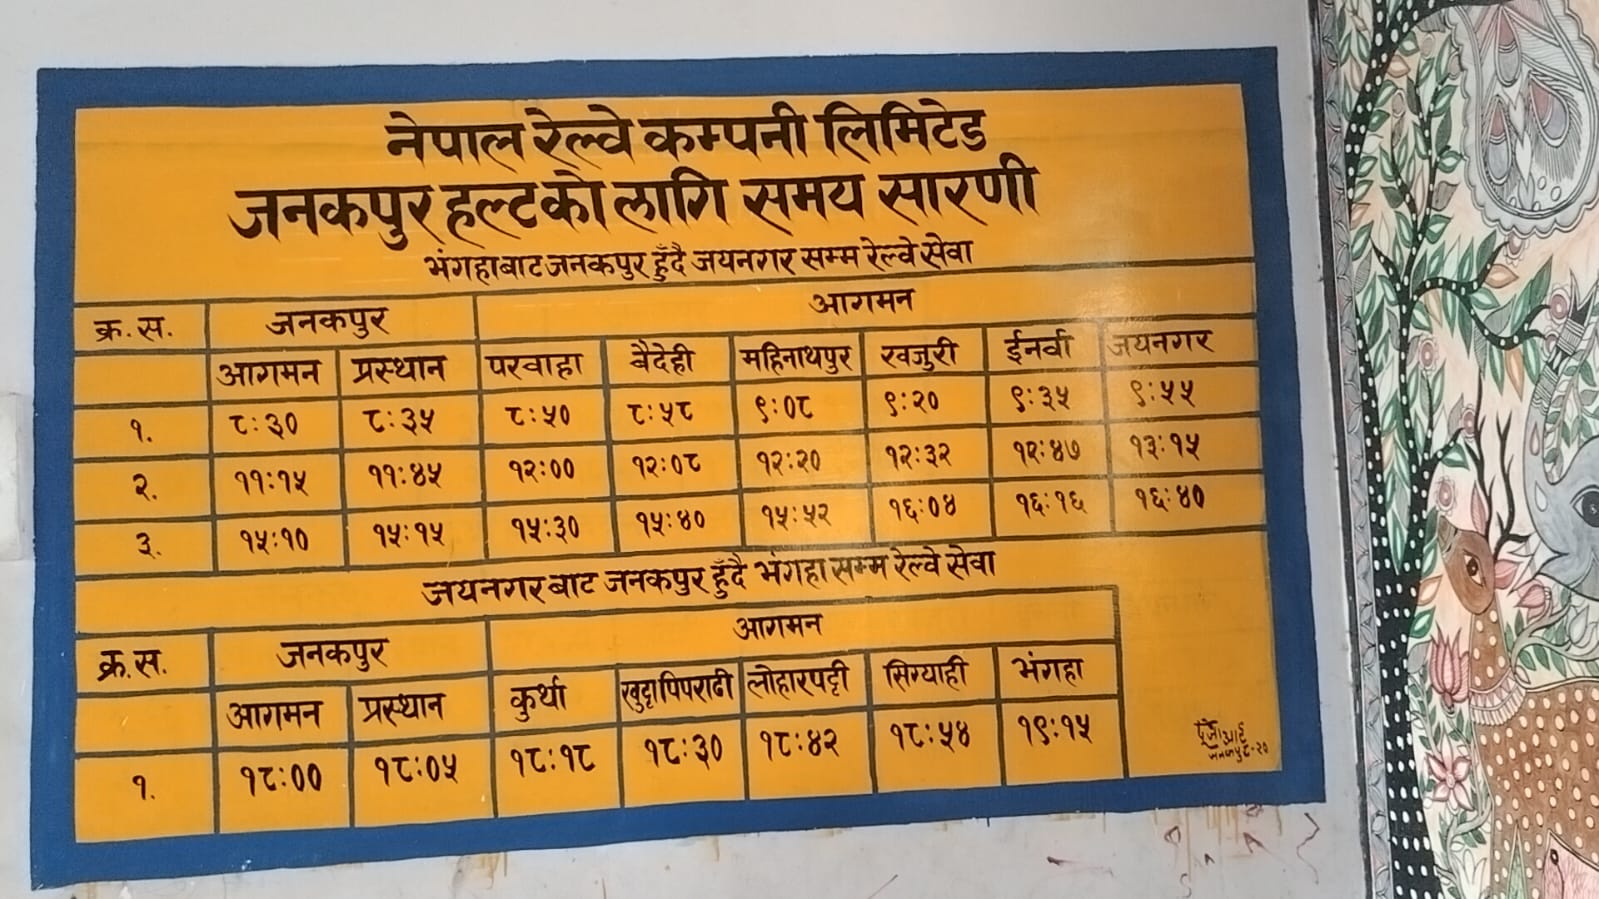 नेपाल रेल्वे कम्पनी लिमिटेड
जनकपुर हल्टको लागि समय सारणी
भंगहाबाट जनकपुर हुँदै जयनगर सम्म रेल्वे सेवा
क्र.स. जनकपुर आगमन
आगमन प्रस्थान परवाहा बैदेही महिनाथपुर खजुरी ईनर्वा जयनगर
१. ८:३० ८:३५ ८:५० ८:५८ ९:०८ ९:२० ९:३५ ९:५५
२. ११:१५ ११:४५ १२:०० १२:०८ १२:२० १२:३२ १२:४७ १३:१५
३. १५:१० १५:१५ १५:३० १५:४० १५:५२ १६:०४ १६:१६ १६:४०
जयनगर बाट जनकपुर हुँदै भंगहा सम्म रेल्वे सेवा
क्र.स. जनकपुर आगमन
आगमन प्रस्थान कुर्था खुट्टापिपराढी लोहारपट्टी सिग्याही भंगहा
१. १८:०० १८:०५ १८:१८ १८:३० १८:४२ १८:५४ १९:१५